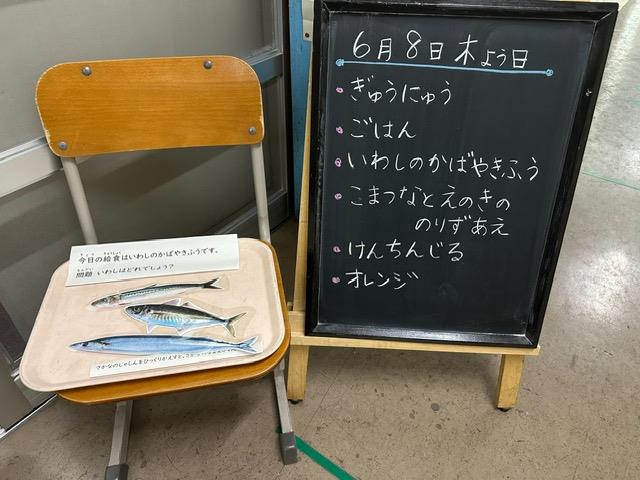 6月8日木よう日
ぎゅうにゅう
ごはん
いわしのかばやきふう
こまつなとえのきの
のりずあえ
けんちんじる
オレンジ
今日の給食はいわしのかばやきふうです。
問題 いわしはどれでしょう?
さかなのしゃしんをひっくりかえすと、